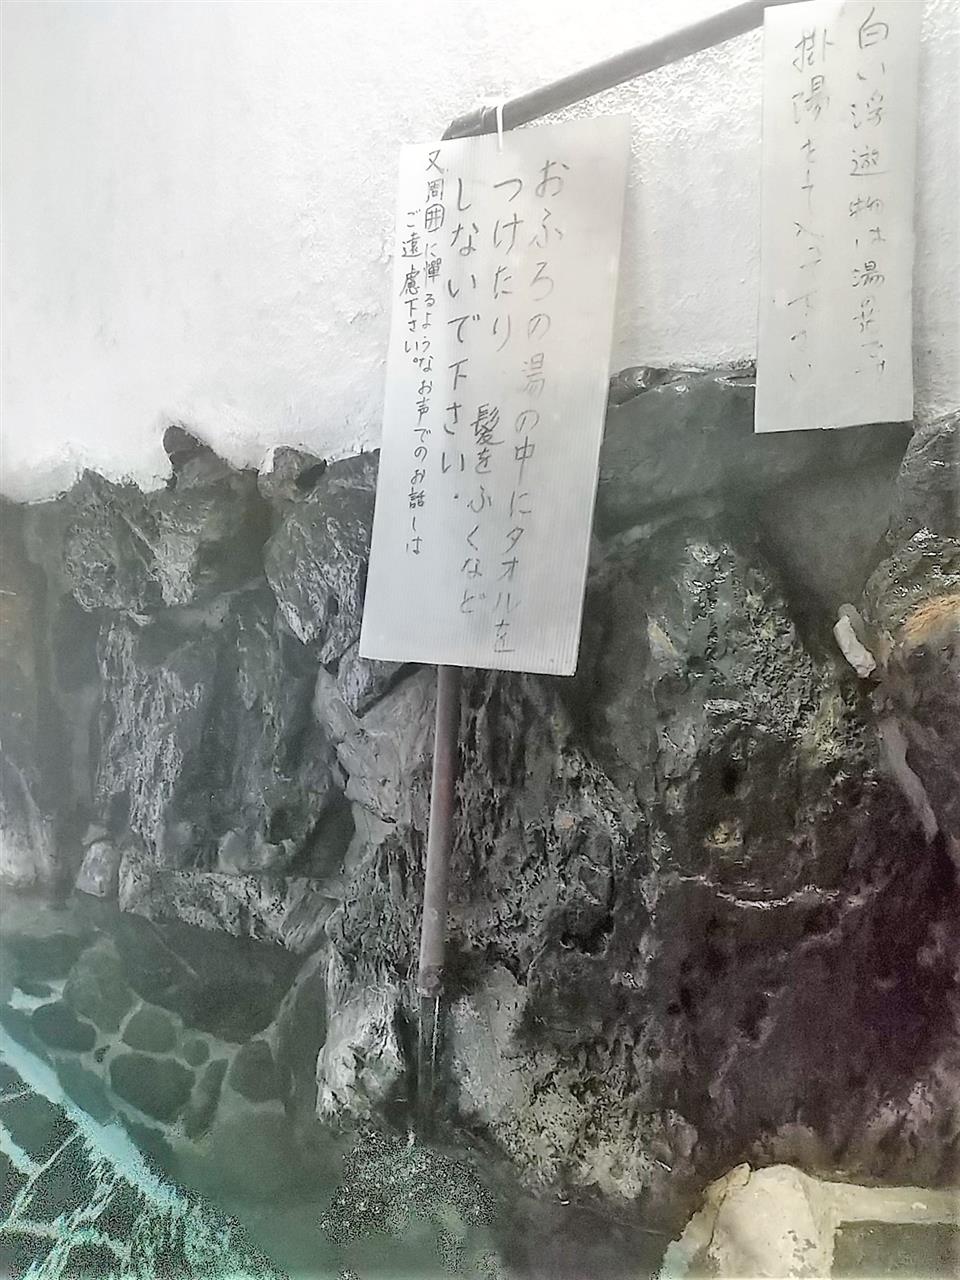 白い浮遊物は湯の花です
掛湯をして入って下さい
おふろの湯の中にタオルを
つけたり 髪をふくなど
しないで下さい.
又周囲に憚るようなお声でのお話しは
ご遠慮下さい。